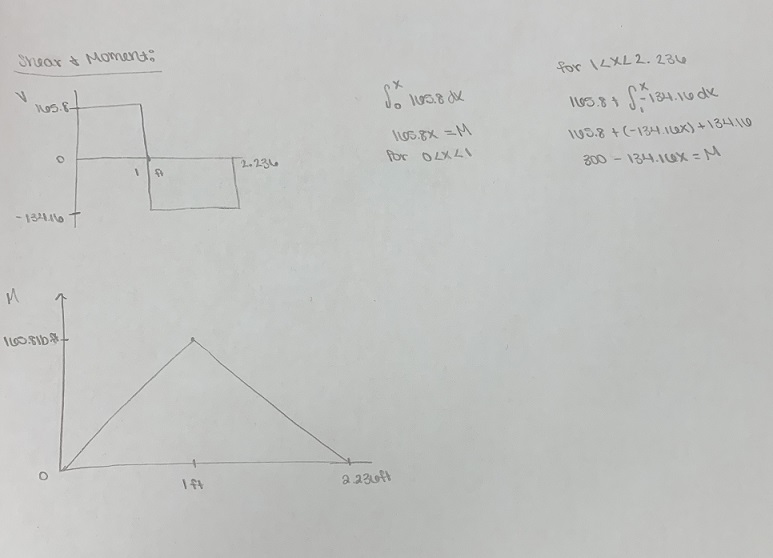 Shear & Moment:
V
165.8
0
1 ft
2.236
-134.16
∫₀ˣ 165.8 dx
165.8x = M
for 0<x<1
for 1<x<2.236
165.8 + ∫₁ˣ -134.16 dx
165.8 + (-134.16x) + 134.16
300 - 134.16x = M
M
160.8 lb ft
0
1 ft
2.236 ft